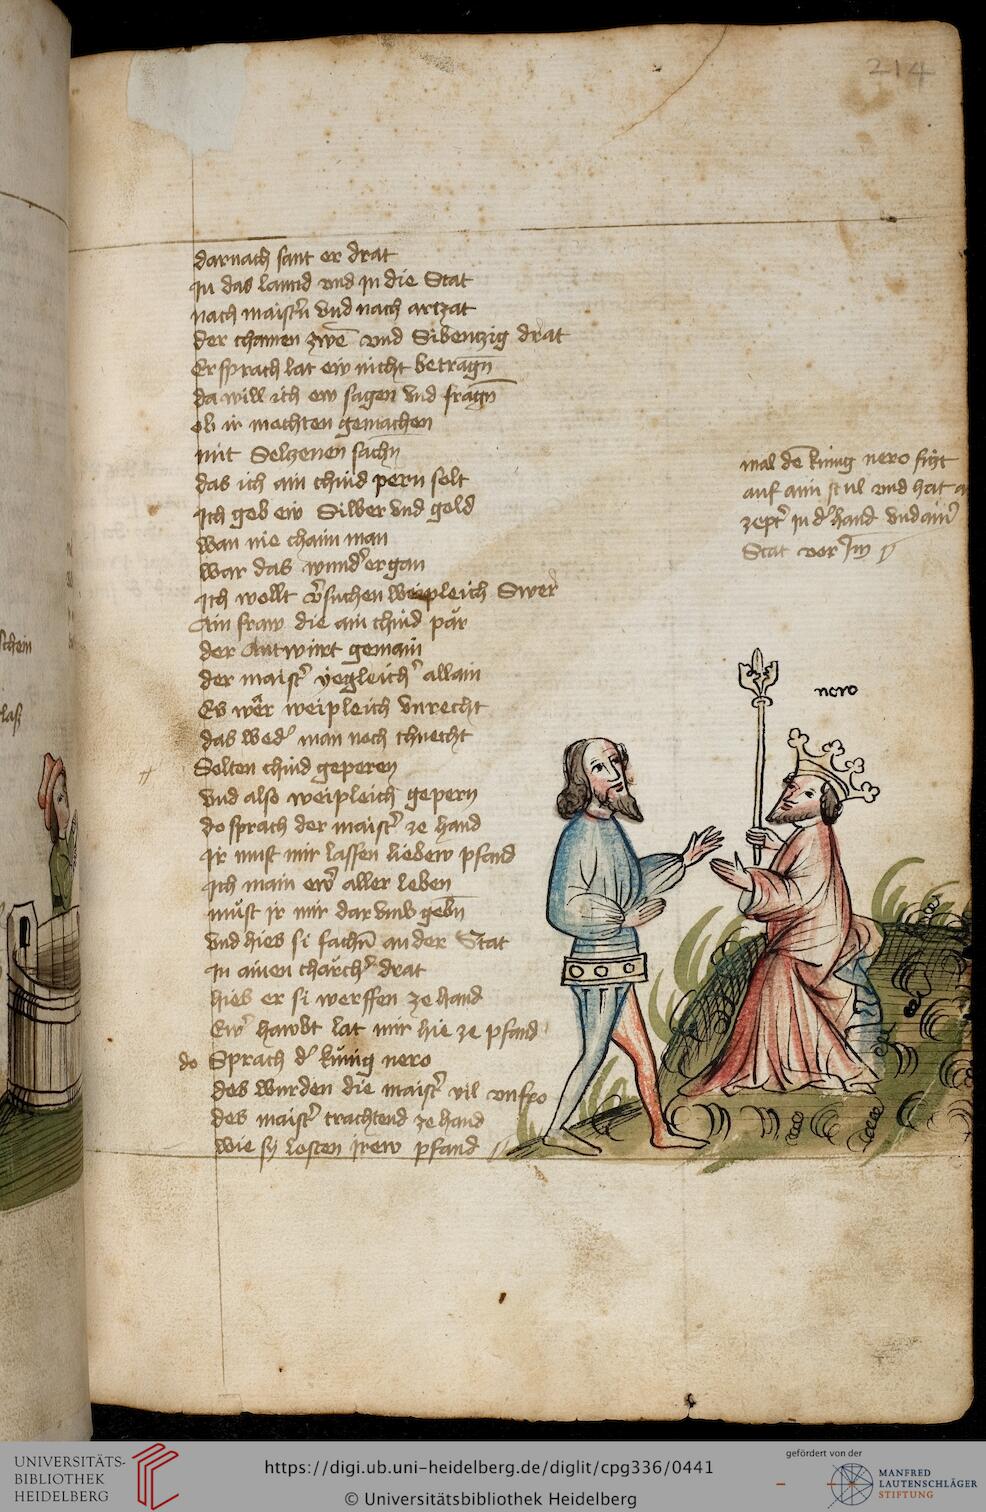 214
darnach sant er drat
In das lannd vnd in die Stat
nach maistn̄ vnd nach artzat
der chamen zwē vnd Sibentzig drat
Er sprach lat ew nicht betragn̄
da will ich ew sagen vnd fragn̄
ob ir mochten gemachen
mit Selzenen sachn
das ich ain chind pern solt
Ich geb ew Silber vnd gold
wan nie chain man
war das wundʼergan
Ich wollt vʼsuchen weipleich Swer
Ain fraw die ain chind pär
der Antwurt gemain
der maistʼ yegleichʼ allain
Es wer weipleich vnrecht
das wedʼ man noch chnecht
Solten chind geperen
vnd also weipleich gepern
do sprach der maistʼ ze hand
Ir must mir lassen liebew pfand
Ich main ewʼ aller leben
must jr mir darvmb gebn̄
vnd hies si fachn̄ an der Stat
In ainen chärchʼ drat
hies er si werffen ze hand
Ewʼ hawbt lat mir hie ze pfand
do Sprach dʼ künig nero
des wurden die maistʼ vil vnfro
des maistʼ trachtend ze hand
wie sy losten jrew pfand
mal dē künig nero siczt
auf aim stul vnd hat
zeptʼ in dʼ hand vnd ainʼ
Stat vor Im
nero
schein
las
UNIVERSITÄTS-
BIBLIOTHEK
HEIDELBERG
https://digi.ub.uni-heidelberg.de/diglit/cpg336/0441
© Universitätsbibliothek Heidelberg
gefördert von der
MANFRED
LAUTENSCHLÄGER
STIFTUNG